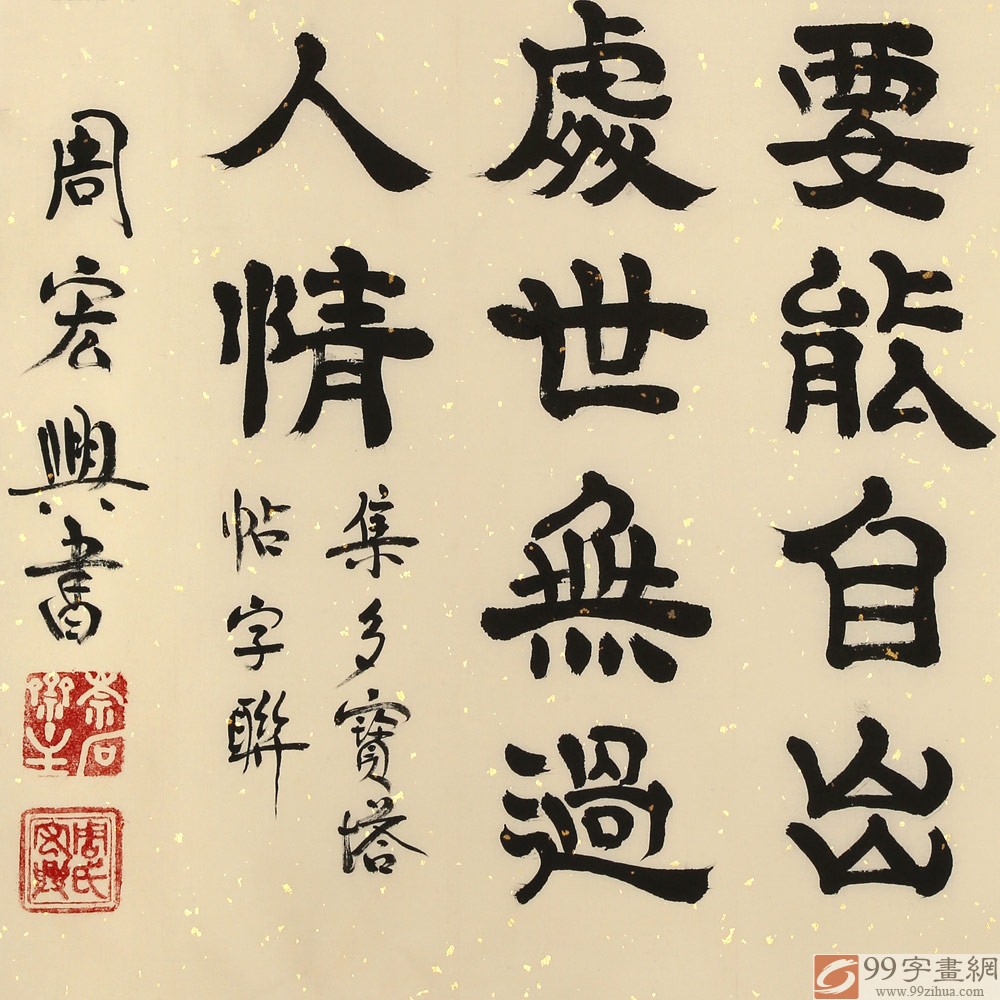 要能自出
處世無過
人情
集多寶塔
帖字聯
周宏興書
奈石
齋主
周氏
宏興
99字畫網
www.99zihua.com